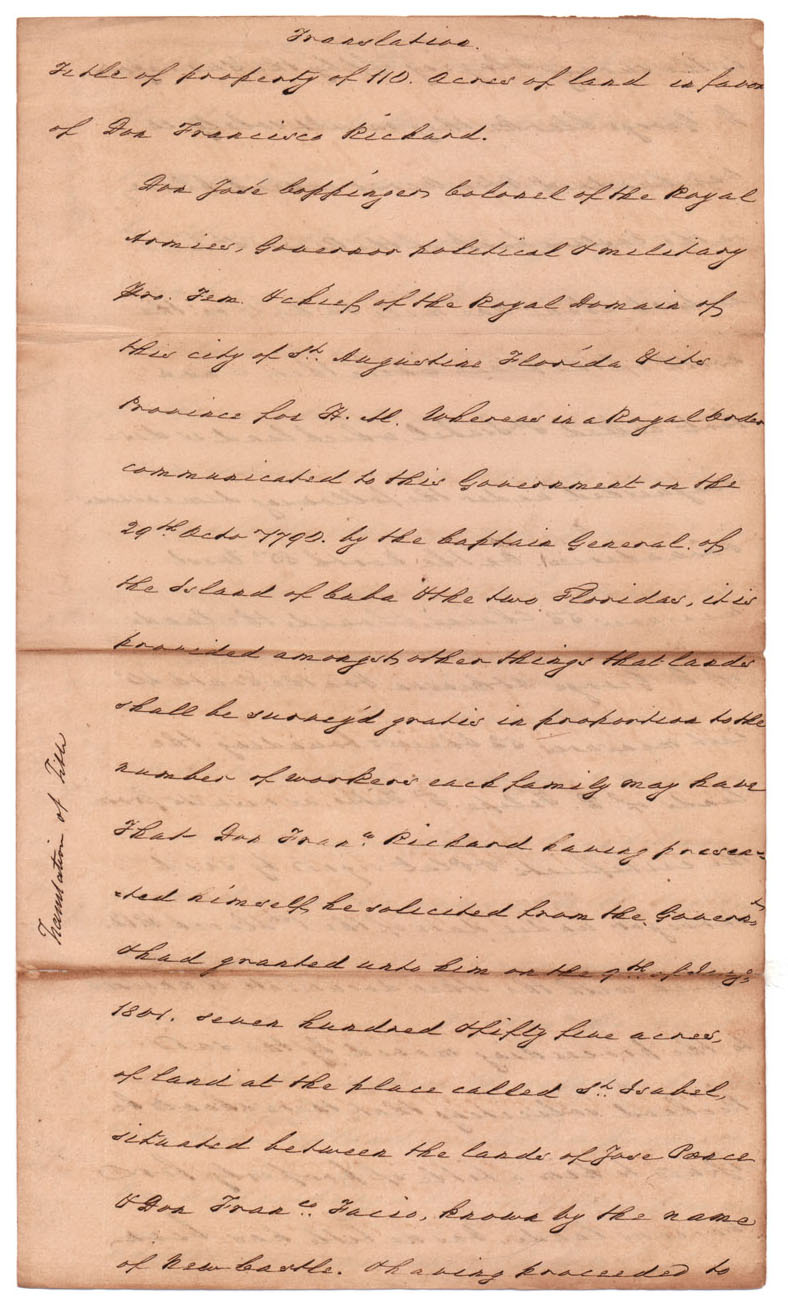 Translation.
Title of property of 110. Acres of land in favor
of Don Francisco Richard.
Don José Coppinger, Colonel of the Royal
Armies, Governor political & military
Pro. Tem. & chief of the Royal Domain of
this city of St. Augustine Florida & its
Province for H. M. Whereas in a Royal Order
communicated to this Government on the
29th Octo 1790. by the Captain General of
the Island of Cuba & the two Floridas, it is
provided amongst other things that lands
shall be survey'd gratis in proportion to the
number of workers each family may have
That Don Franco Richard having presen=
=ted himself, he solicited from the Governt
& had granted unto him on the 9th of
1801. seven hundred & fifty five acres,
of land at the place called St. Isabel,
situated between the lands of Jose Ponce
& Don Franco. Facio, known by the name
of New Castle. & having proceeded to
Translation of Title